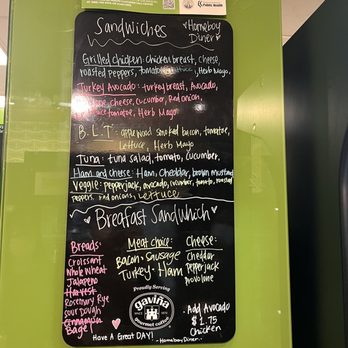 Sandwiches
Homeboy
Diner
Grilled chicken: chicken breast, cheese,
roasted peppers, tomato, lettuce, Herb Mayo.
Turkey Avocado: turkey breast, Avocado,
cheese, cucumber, Red onion,
tomato, Herb Mayo
B.L.T: applewood smoked bacon, tomatoe,
Lettuce, Herb Mayo
Tuna: tuna salad, tomato, cucumber,
Ham and cheese: Ham, Cheddar, brown mustard
Veggie: pepperjack, avocado, cucumber, tomato, roasted
peppers, red onions, Lettuce
Breafast Sandwhich
Breads:
Croissant
Whole Wheat
Jalapeno
Harvest
Rosemary Rye
Sour dough
Bagel
Meat choice:
Bacon • Sausage
Turkey • Ham
Cheese:
Cheddar
Pepperjack
Provolone
Proudly Serving
gaviña
gourmet coffee
Add Avocado
$1.75
Chicken
Have A Great DAY!
-Homeboy Diner-
Public Health